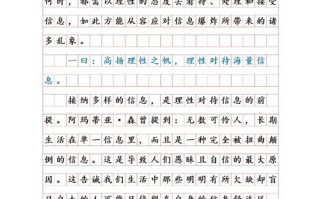 何时，都需以理性的态度去看待、处理和接受
信息，如此方能从容应对信息爆炸所带来的诸
多乱象。
一曰：高扬理性之帆，理性对待海量信
息。
接纳多样的信息，是理性对待信息的前
提。阿玛蒂亚·森曾提到：无数可怜人，长期
生活在单一信息里，而且是一种完全被扭曲颠
倒的信息。这是导致人们愚昧且自信的最大原
因。这告诫我们生活中那些明明有所欠缺却盲